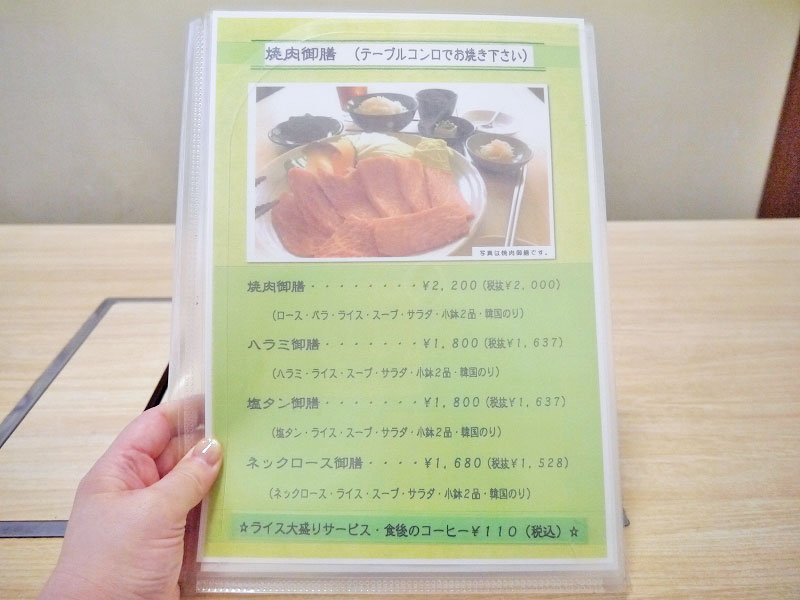 焼肉御膳　（テーブルコンロでお焼き下さい）
写真は焼肉御膳です。
焼肉御膳・・・・・・・・¥2,200（税抜¥2,000）
（ロース・バラ・ライス・スープ・サラダ・小鉢2品・韓国のり）
ハラミ御膳・・・・・・・¥1,800（税抜¥1,637）
（ハラミ・ライス・スープ・サラダ・小鉢2品・韓国のり）
塩タン御膳・・・・・・・¥1,800（税抜¥1,637）
（塩タン・ライス・スープ・サラダ・小鉢2品・韓国のり）
ネックロース御膳・・・・¥1,680（税抜¥1,528）
（ネックロース・ライス・スープ・サラダ・小鉢2品・韓国のり）
☆ライス大盛りサービス・食後のコーヒー¥110（税込）☆